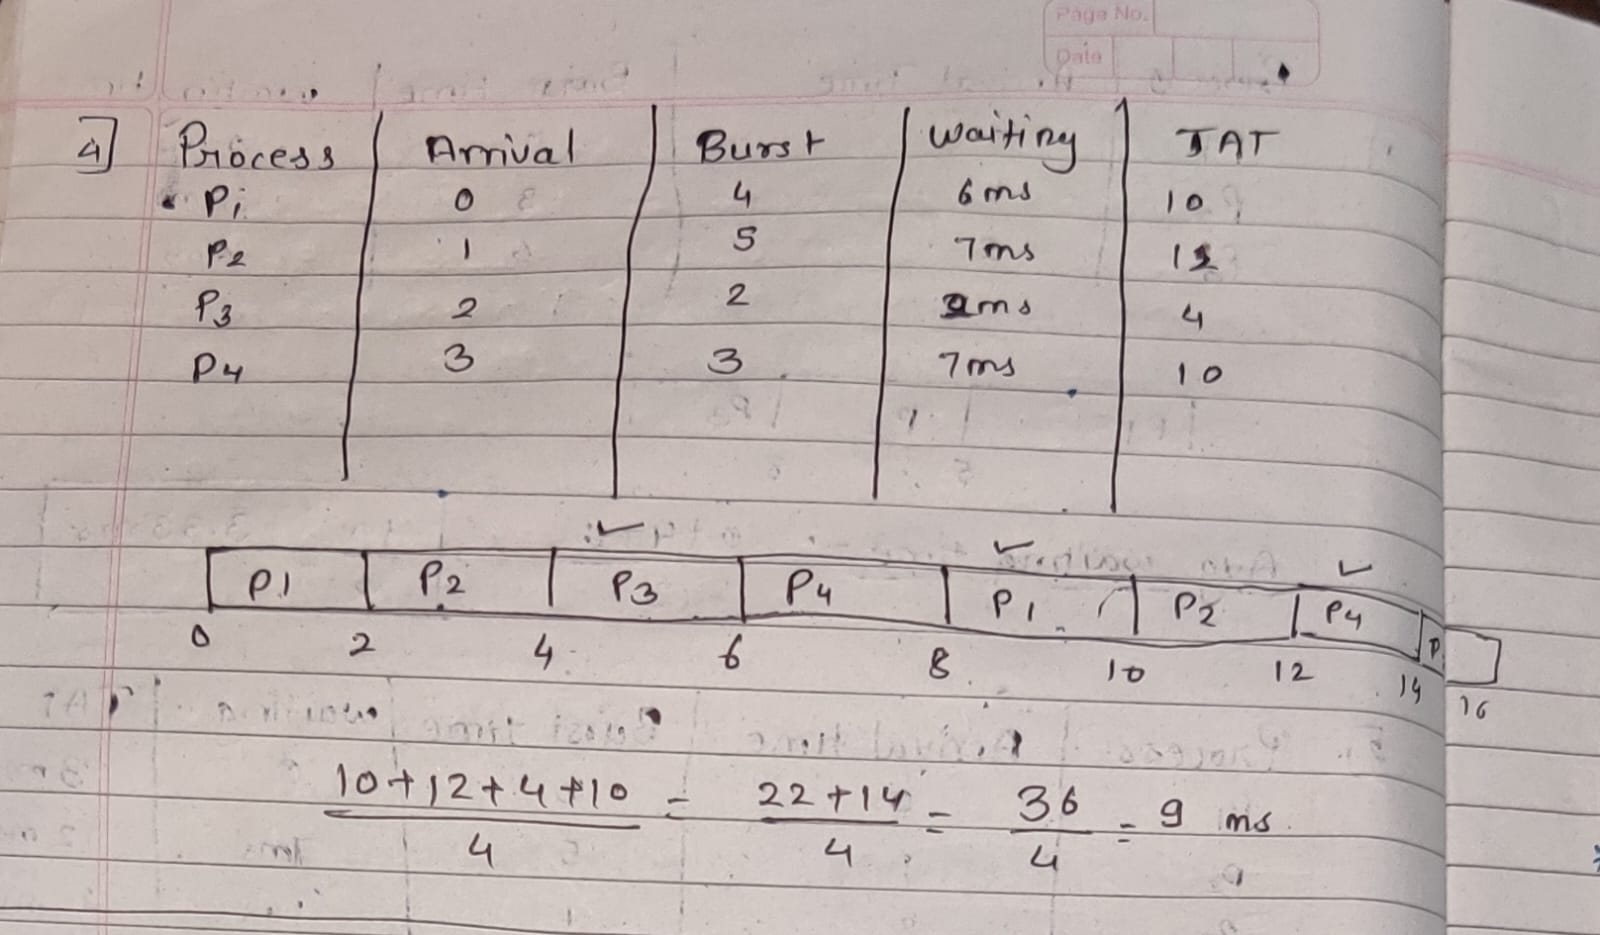 Page No.
Date
4] Process Arrival Burst Waiting TAT
P1 0 4 6ms 10
P2 1 5 7ms 12
P3 2 2 2ms 4
P4 3 3 7ms 10
P1 P2 P3 P4 P1 P2 P4 P
0 2 4 6 8 10 12 14 16
10+12+4+10 = 22+14 = 36 = 9 ms
4 4 4